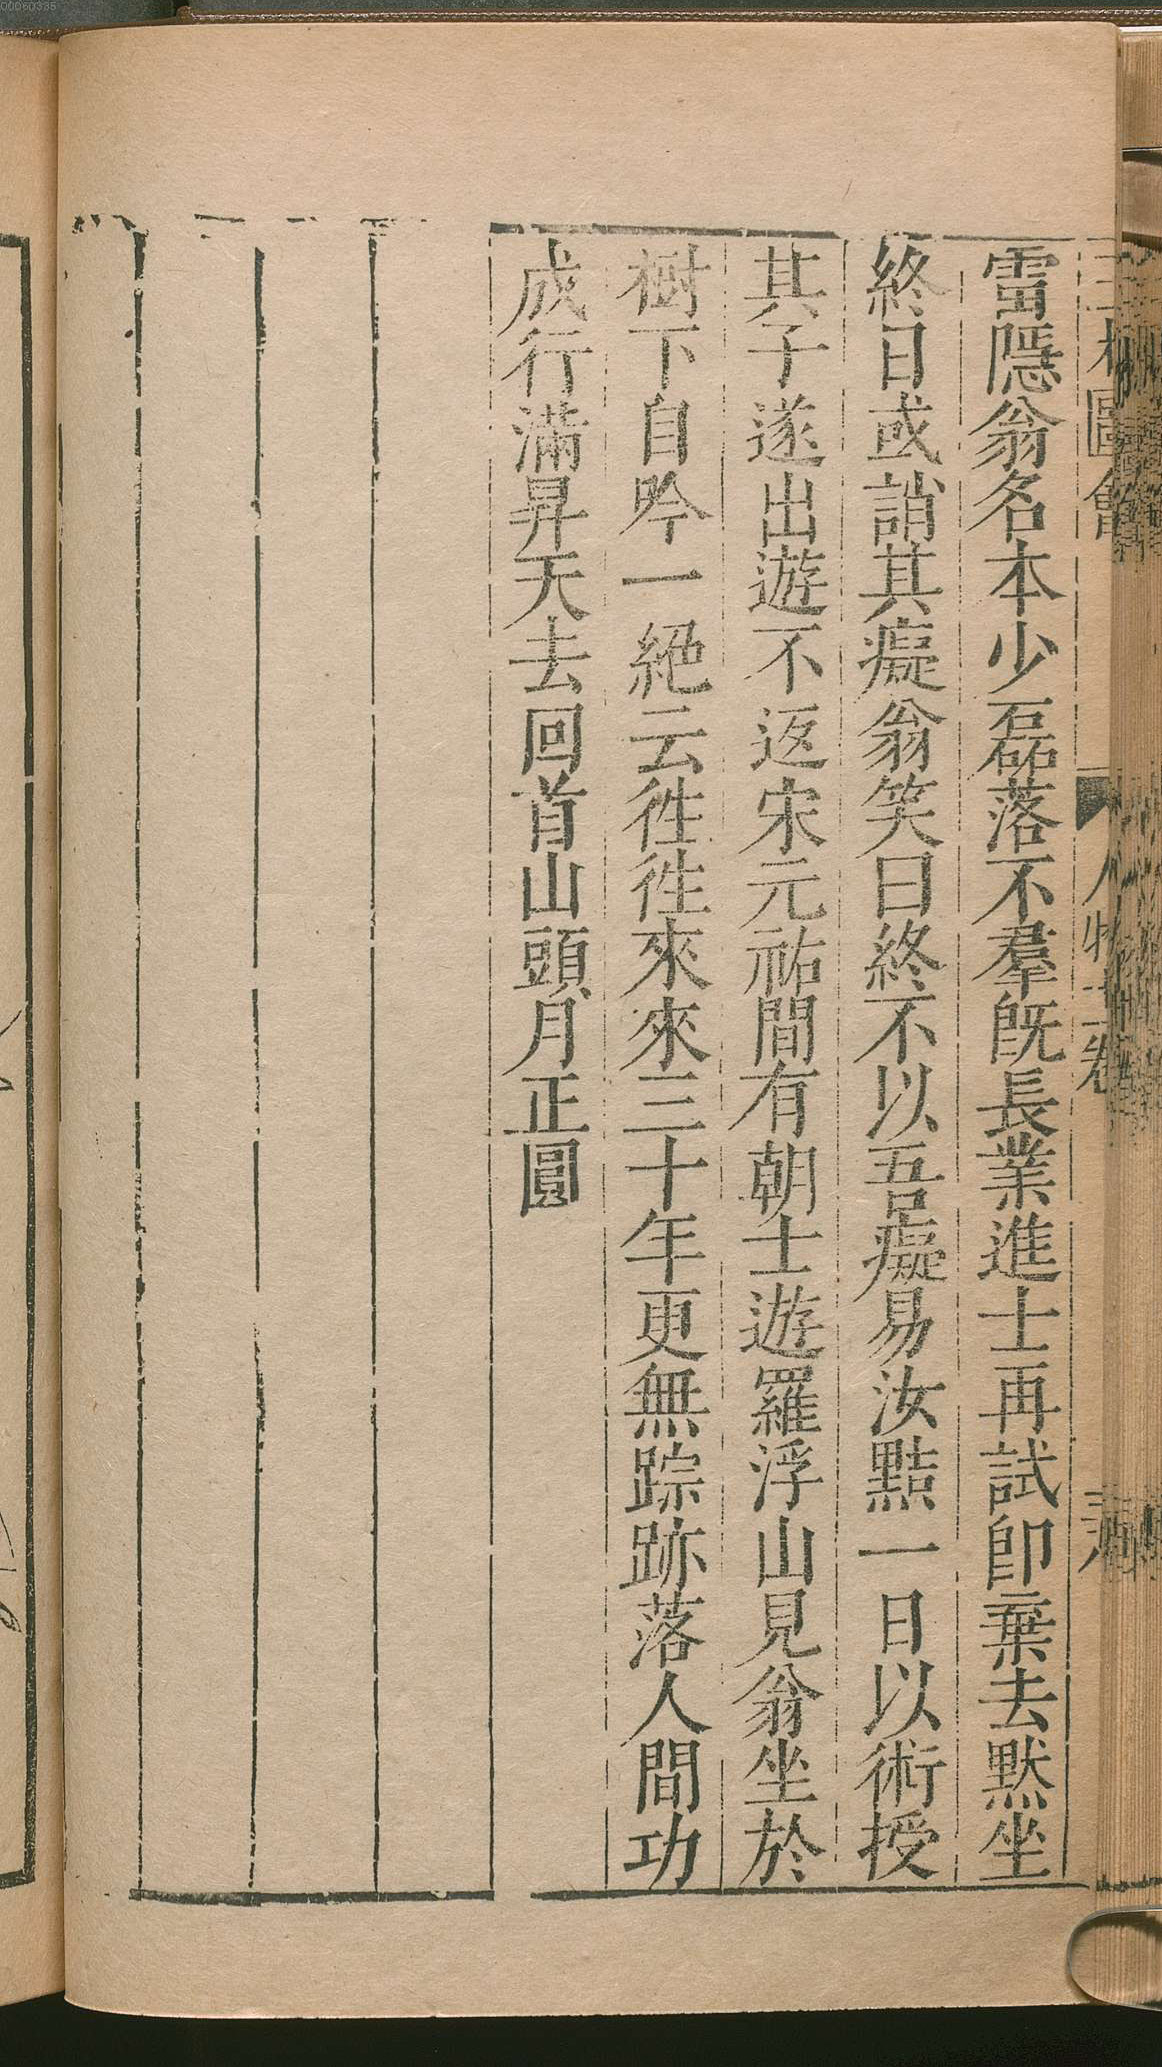 雷隱翁名本少磊落不羣旣長業進士再試卽棄去默坐
終日或誚其癡翁笑曰終不以吾癡易汝黠一日以術授
其子遂出遊不返宋元祐間有朝士遊羅浮山見翁坐於
樹下自吟一絕云徃徃來來三十年更無踪跡落人間功
成行滿昇天去回首山頭月正圓
00060335